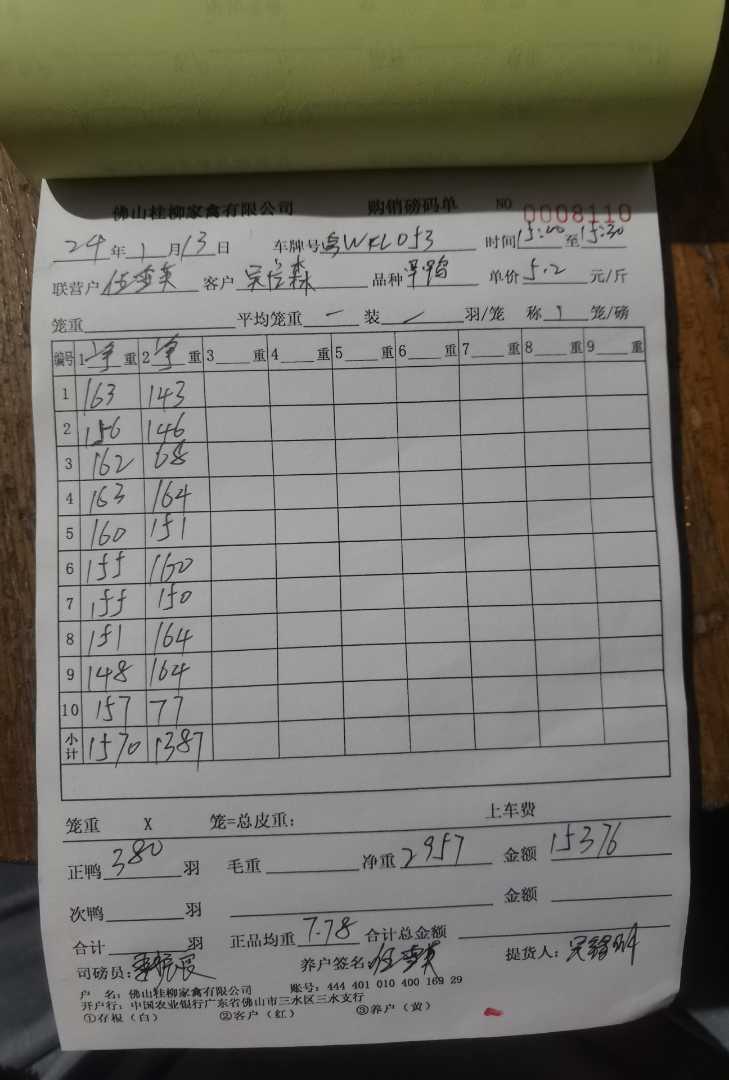 佛山桂柳家禽有限公司 购销磅码单 NO 0008110
24年1月13日 车牌号粤WKL053 时间15:00至15:30
联营户伍雪英 客户 品种 单价5.2元/斤
笼重 平均笼重一装 羽/笼 称1笼/磅
编号 1净重 2净重 3 重 4 重 5 重 6 重 7 重 8 重 9 重
1 163 143
2 156 146
3 162 68
4 163 164
5 160 151
6 155 160
7 155 150
8 151 164
9 148 164
10 157 77
小计 1570 1387
笼重 X 笼=总皮重: 上车费
正鸭380羽 毛重 净重2957 金额15376
次鸭 羽 金额
合计 羽 正品均重7.78 合计总金额
司磅员: 养户签名:伍雪英 提货人:
户 名: 佛山桂柳家禽有限公司 账号: 444 401 010 400 169 29
开户行: 中国农业银行广东省佛山市三水区三水支行
①存根(白) ②客户(红) ③养户(黄)